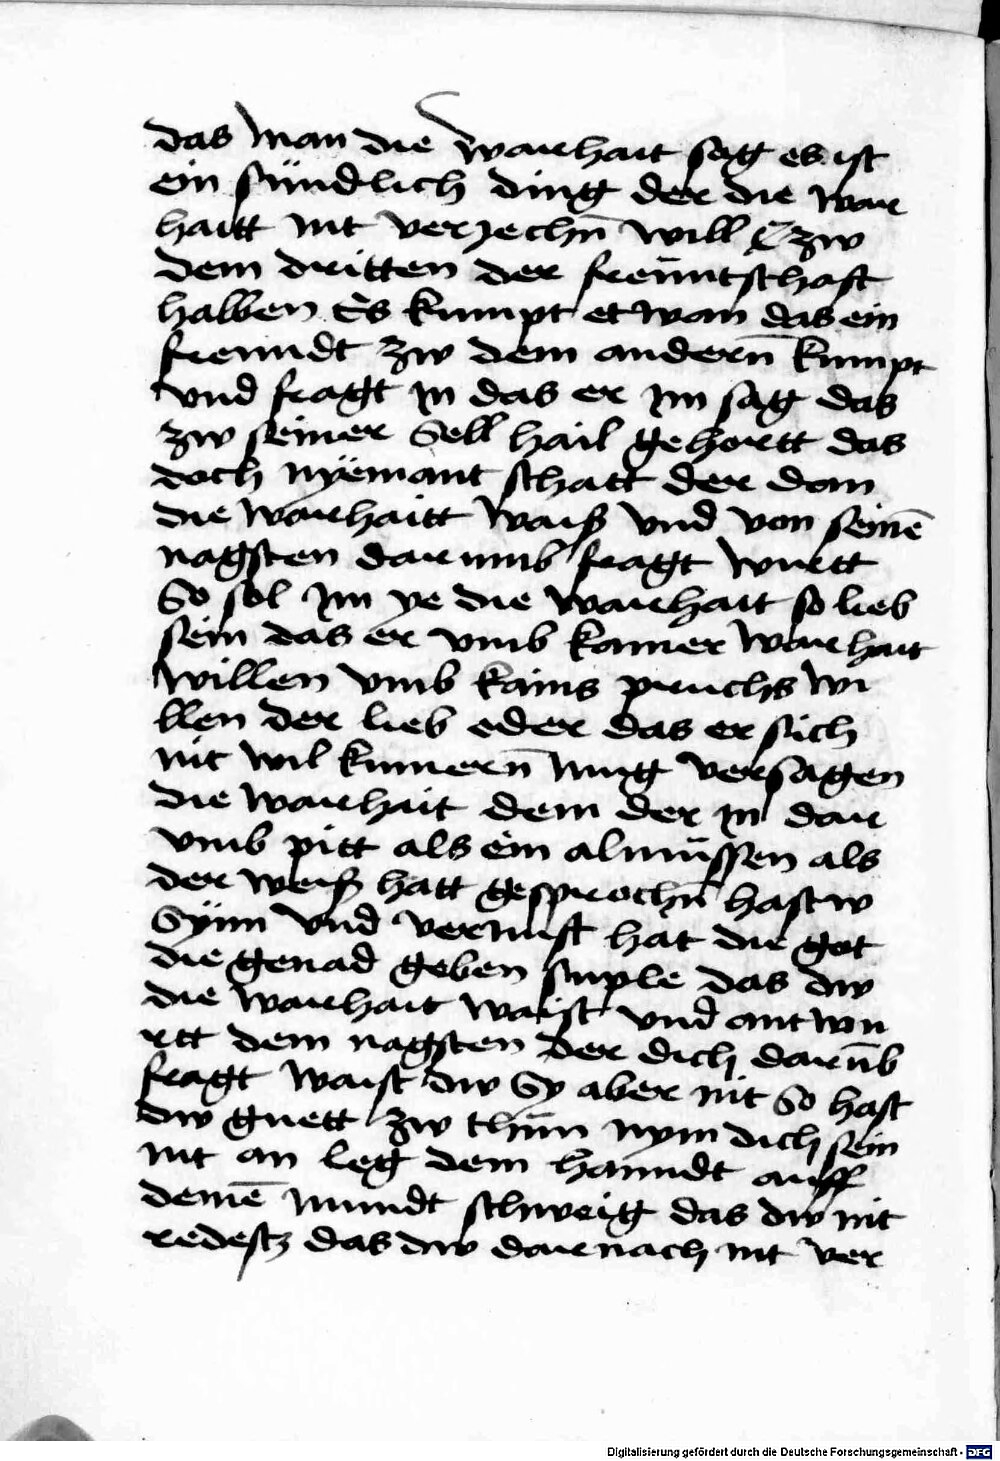 das man die warhait sag es ist
ein sündlich ding der die war
haitt nit verjechn̄ will zw
dem dritten der freuntschaft
halben Es kumpt etwan das ein
freundt zw dem andern̄ kumpt
vnd fragt in das er im sag das
zw seiner Sell hail gehortt das
doch nyëmant schatt der dan
die warhaitt waiß vnd von seinē
nagsten darumb fragt wurtt
So sol im ye die warhait so lieb
sein das er vmb kainer warhait
willen vmb kains pruchs wi
llen der lieb oder das er sich
nit wil kumern̄ mug versagen
die warhait dem der in dar
vmb pitt als ein almüssen als
der weiß hatt gesprochn̄ hastw
Synn vnd vernuft hat die got
die genad geben suple das dw
die warhait waist vnd antwu
rtt dem nagsten der dich darūb
fragt waist dw Sy aber nit So hast
dw guett zw thun nym dich sein
nit an leg dem hanndt auff
deinē mundt schweig das dw nit
redestz das dw darnach nit ver
Digitalisierung gefördert durch die Deutsche Forschungsgemeinschaft - DFG